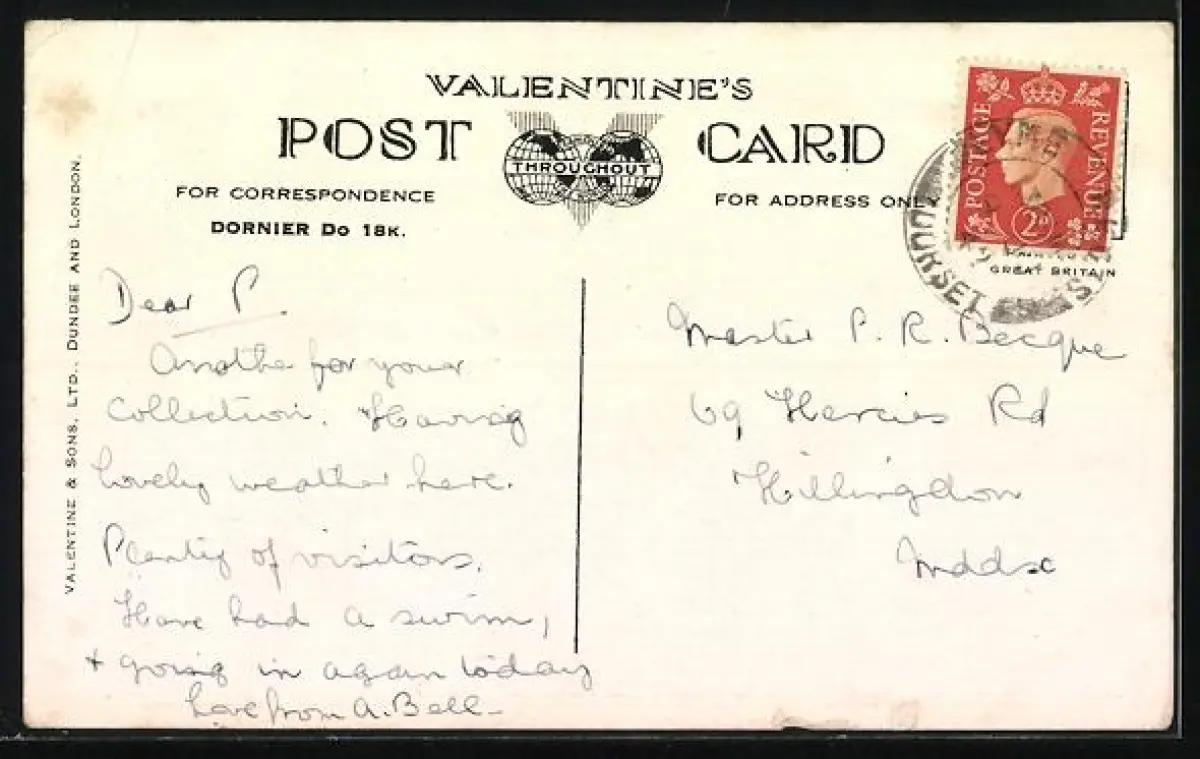 VALENTINE'S
POST CARD
THROUGHOUT
FOR CORRESPONDENCE
FOR ADDRESS ONLY
DORNIER Do 18K.
POSTAGE
REVENUE
2D
GREAT BRITAIN
DORSET
VALENTINE & SONS, LTD., DUNDEE AND LONDON.
Dear P.
Another for your
Collection. Having
lovely weather here.
Plenty of visitors.
Have had a swim,
+ going in again today
Love from A. Bell-
Master P. R. Becque
69 Hercies Rd
Hillingdon
Mddsx